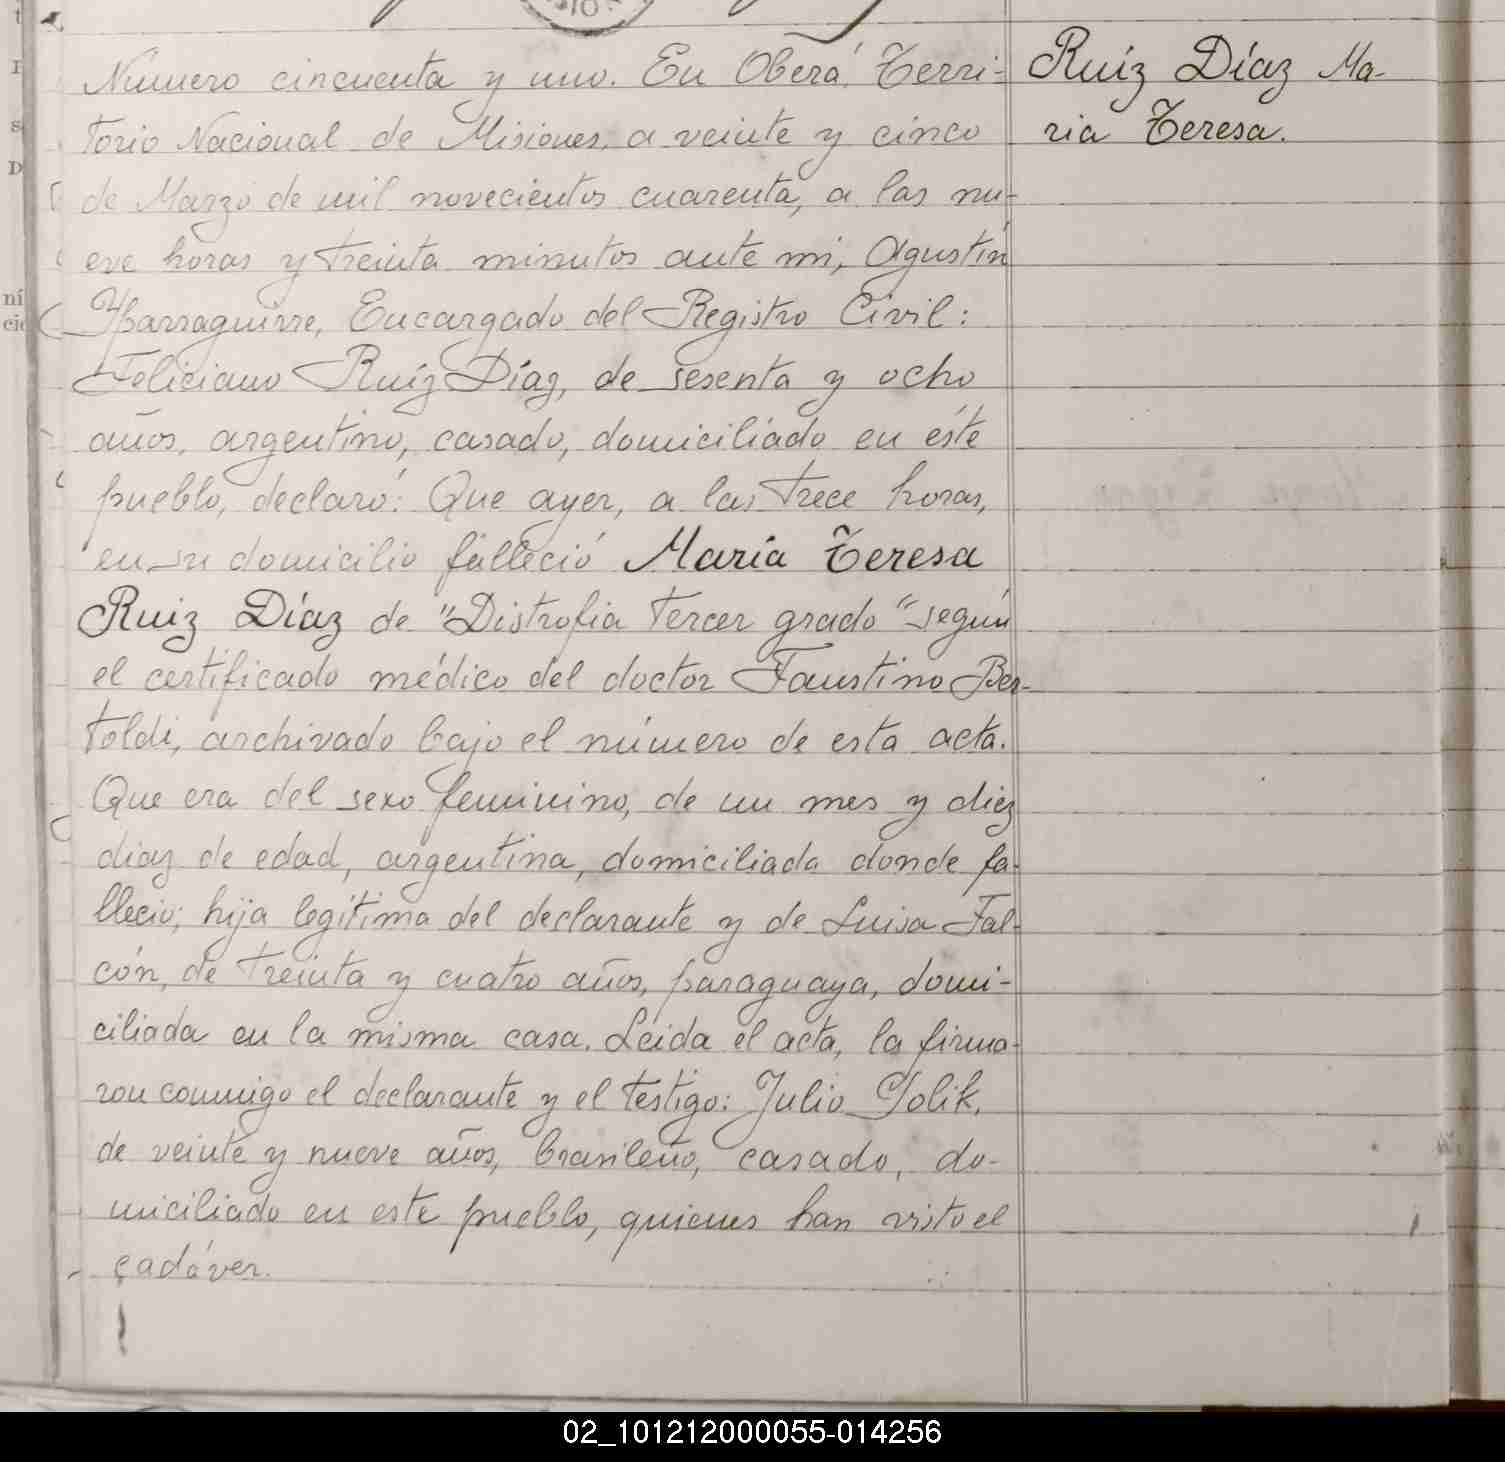 Ruíz Díaz Ma-
ria Teresa.
Número cincuenta y uno. En Oberá, Terri-
torio Nacional de Misiones, a veinte y cinco
de Marzo de mil novecientos cuarenta, a las nu-
eve horas y treinta minutos ante mi, Agustín
Yparraguirre, Encargado del Registro Civil:
Feliciano Ruíz Díaz, de sesenta y ocho
años, argentino, casado, domiciliado en éste
pueblo, declaró: Que ayer, a las trece horas,
en su domicilio falleció María Teresa
Ruiz Díaz de "Distrofia tercer grado" según
el certificado médico del doctor Faustino Ber-
toldi, archivado bajo el número de esta acta.
Que era del sexo femenino, de un mes y diez
diaz de edad, argentina, domiciliada donde fa-
lleció; hija legítima del declarante y de Luisa Fal-
cón, de treinta y cuatro años, paraguaya, domi-
ciliada en la misma casa. Leida el acta, la firma-
ron conmigo el declarante y el testigo: Julio Golik,
de veinte y nueve años, brasileño, casado, do-
miciliado en este pueblo, quienes han visto el
cadáver.
02_101212000055-014256